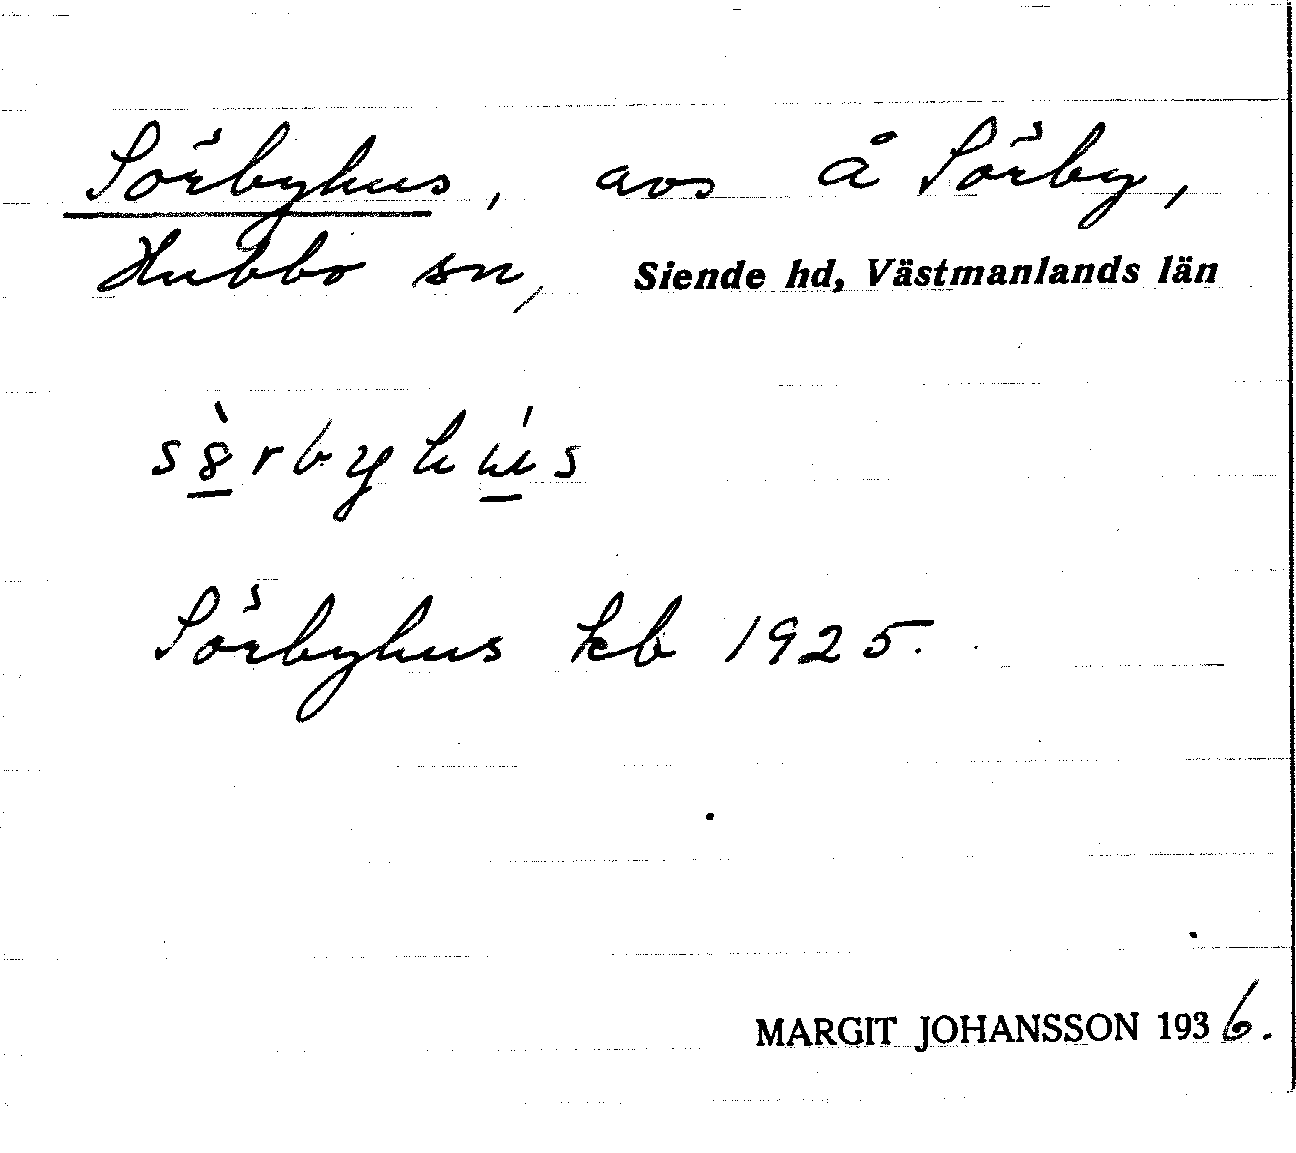 Sörbyhus, avs å Sörby,
Hubbo sn, Siende hd, Västmanlands län
s8̱̀rbyhú̱s
Sörbyhus kb 1925.
MARGIT JOHANSSON 1936.